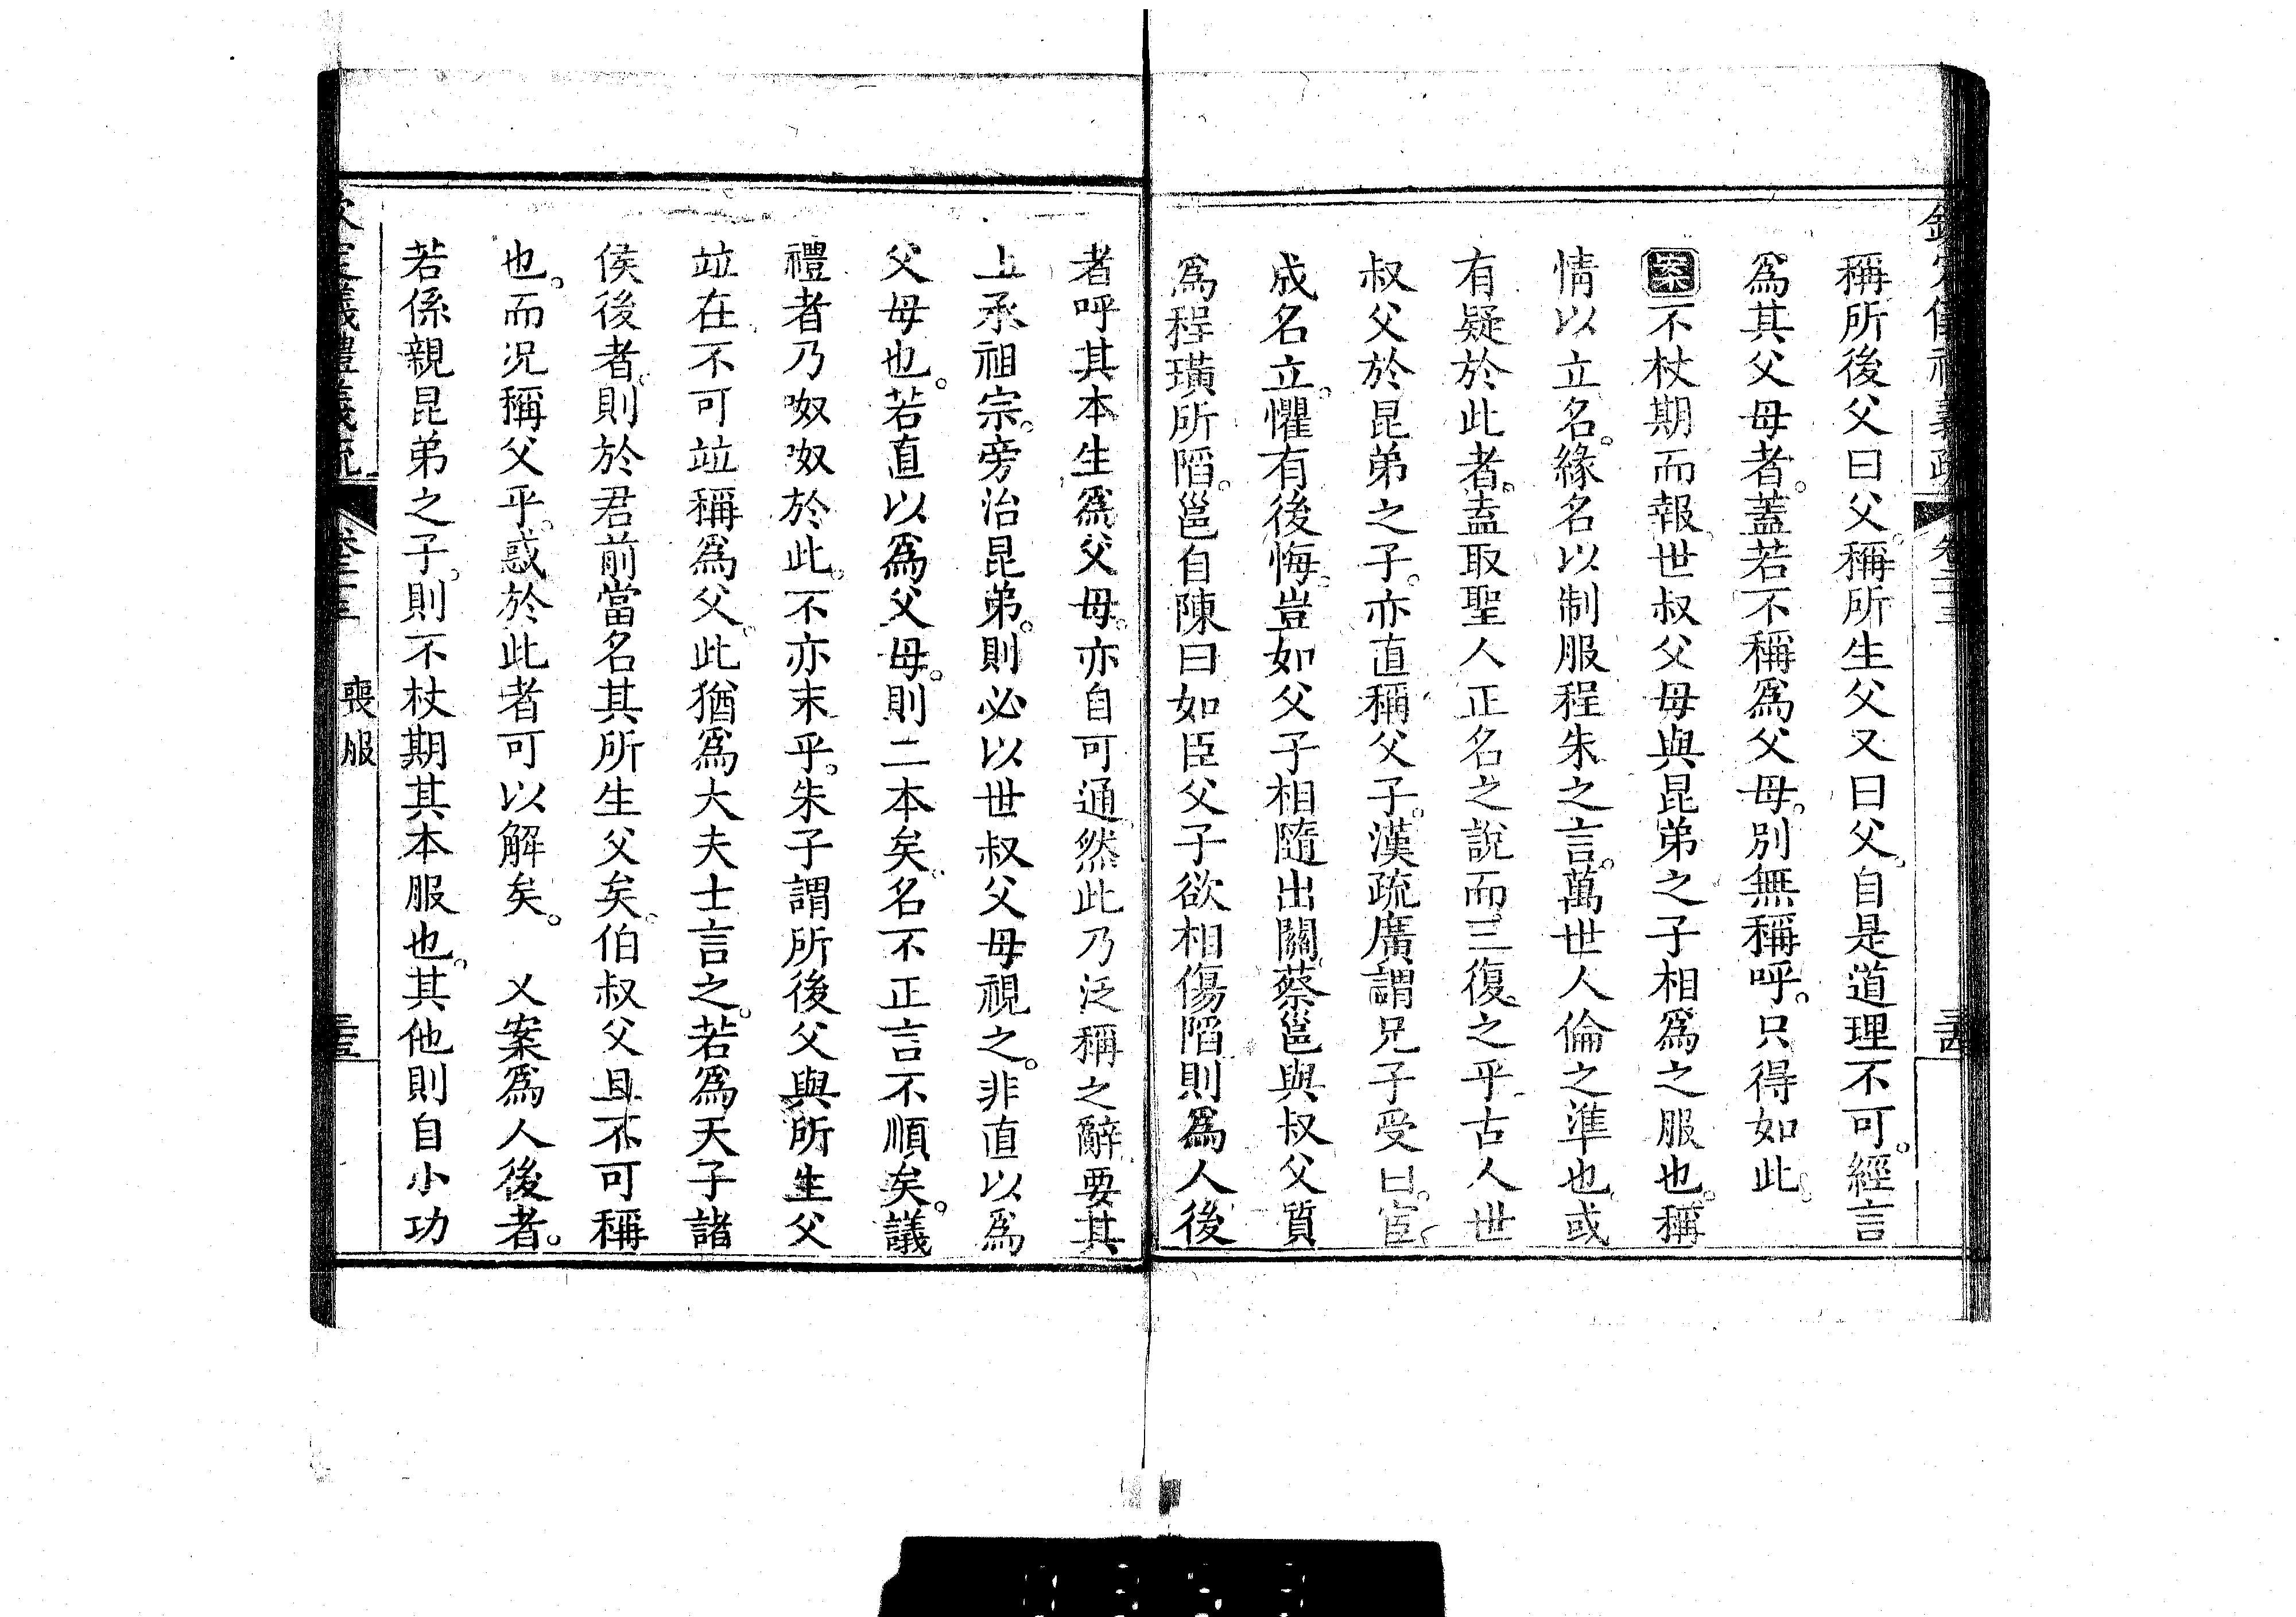 稱所後父曰父。稱所生父又曰父。自是道理不可。經言
爲其父母者。蓋若不稱爲父母。別無稱呼。只得如此。
案不杖期而報。世叔父母與昆弟之子相爲之服也。稱
情以立名。緣名以制服程朱之言。萬世人倫之準也。或
有疑於此者。盍取聖人正名之說而三復之乎。古人世
叔父於昆弟之子。亦直稱父子。漢疏廣謂兄子受曰。宦
成名立。懼有後悔。豈如父子相隨出關。蔡邕與叔父質
爲程璜所䧟。邕自陳曰如臣父子欲相傷䧟則爲人後
者呼其本生爲父母。亦自可通。然此乃泛稱之辭要其
上承祖宗。旁治昆弟。則必以世叔父母視之。非直以爲
父母也。若直以爲父母。則二本矣。名不正言不順矣。議
禮者乃呶呶於此。不亦末乎。朱子謂所後父與所生父
竝在不可竝稱爲父。此猶爲大夫士言之。若爲天子諸
侯後者。則於君前當名其所生父矣。伯叔父且不可稱
也。而況稱父乎。惑於此者可以解矣。　又案爲人後者。
若係親昆弟之子。則不杖期其本服也。其他則自小功
喪服